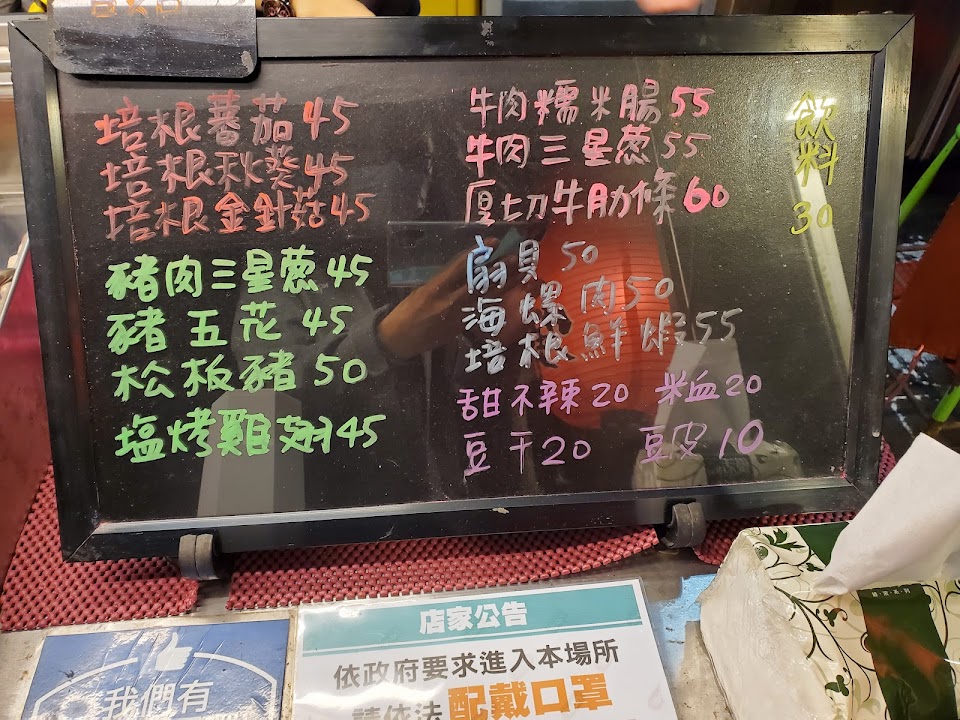 培根蕃茄45
培根秋葵45
培根金針菇45
豬肉三星蔥45
豬五花 45
松板豬50
塩烤雞翅45
牛肉糯米腸55
牛肉三星蔥55
厚切牛肋條60
扇貝50
海螺肉50
培根鮮蝦55
甜不辣20 米血20
豆干20 豆皮10
飲料
30
店家公告
依政府要求進入本場所
請依法配戴口罩
我們有